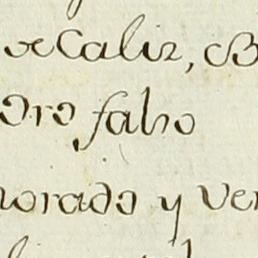 de Caliz, B
oro falso
morado y ver